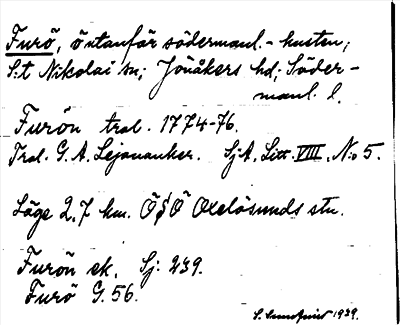 Furö, östanför södermanl.-kusten;
S:t Nikolai sn; Jönåkers hd; Söder-
manl. l.
Furön tral. 1774-76.
Tral. G. A. Lejonanker. SjA. Litt. VIII. N:o 5.
Läge 2,7 km. ÖSÖ Oxelösunds stn.
Furön ek. Sj: 239.
Furö G. 56.
S. 1939.